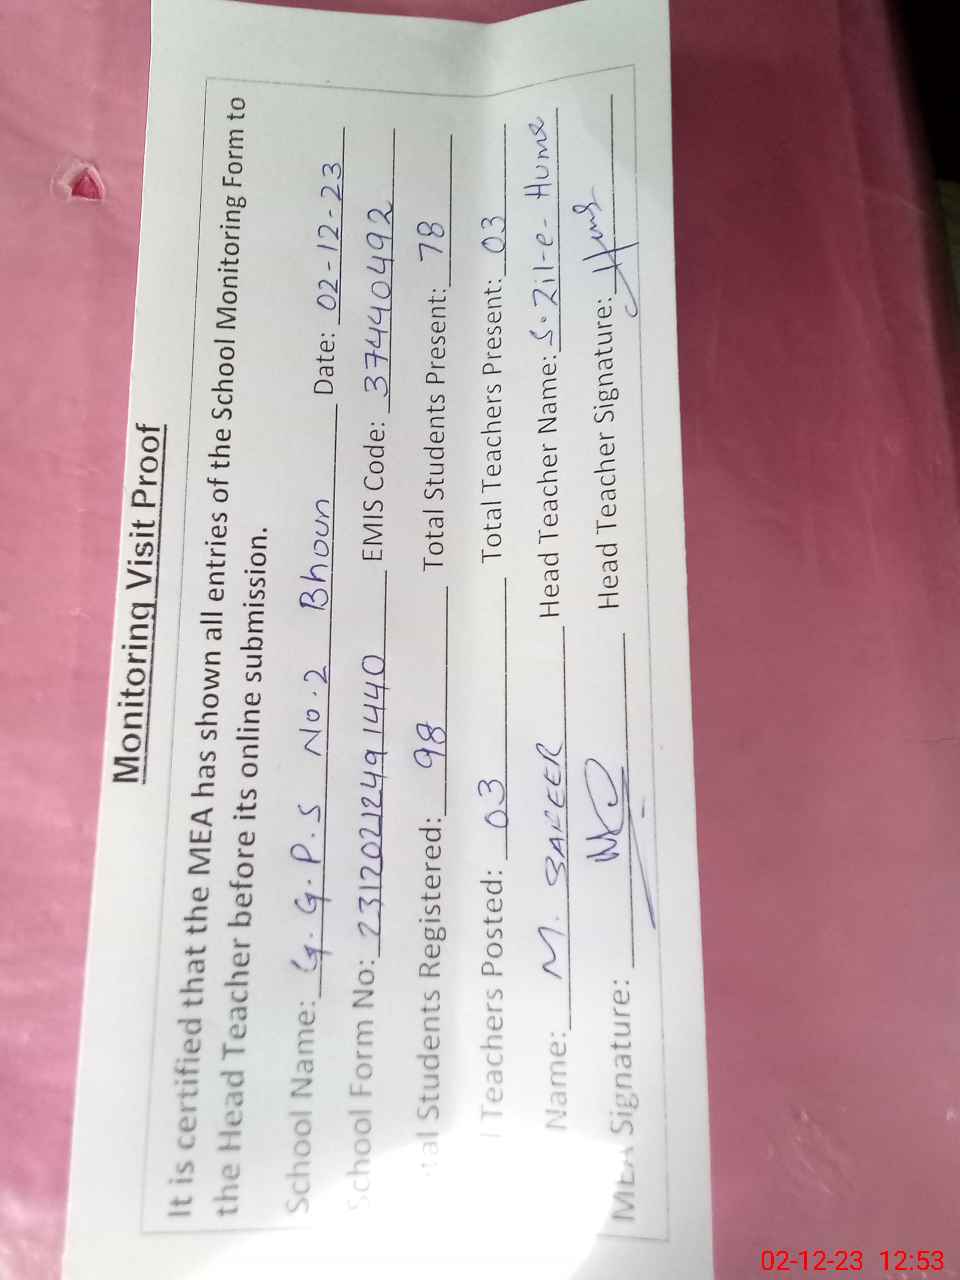 Monitoring Visit Proof
It is certified that the MEA has shown all entries of the School Monitoring Form to
the Head Teacher before its online submission.
School Name: G.G.P.S No.2 Bhoun Date: 02-12-23
School Form No: 23120212491440 EMIS Code: 37440492
tal Students Registered: 98 Total Students Present: 78
Teachers Posted: 03 Total Teachers Present: 03
Name: M. Head Teacher Name: S. Zil-e- Huma
MEA Signature: Head Teacher Signature:
02-12-23 12:53